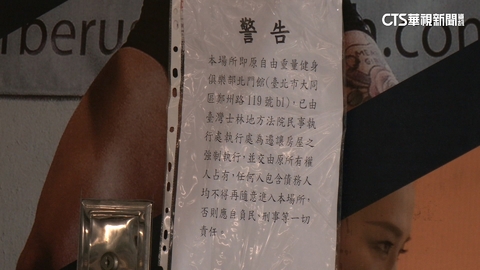 CTS華視新聞
rberus
.com
警告
本場所即原自由重量健身
俱樂部北門館(臺北市大同
區鄭州路119號b1),已由
臺灣士林地方法院民事執
行處執行處為遷讓房屋之
強制執行,並交由原所有權
人占有,任何人包含債務人
均不得再隨意進入本場所,
否則應自負民、刑事等一切
責任。